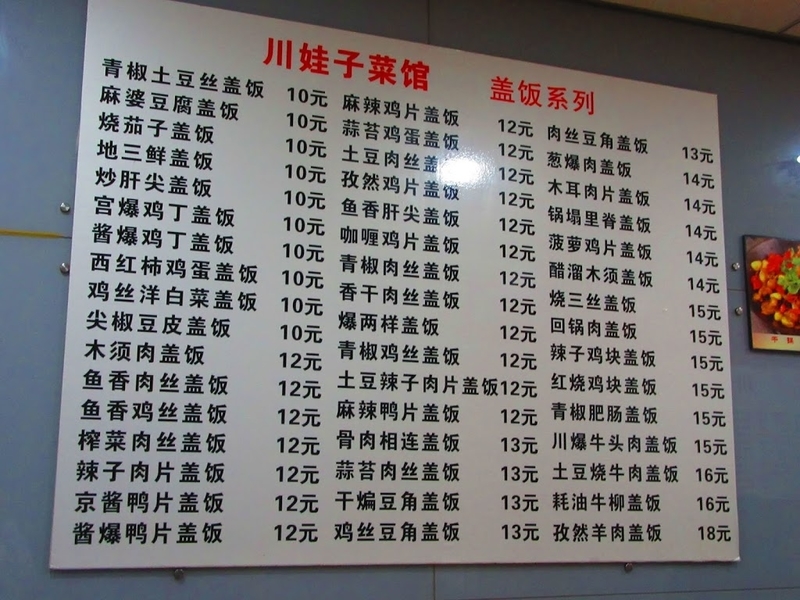 川娃子菜馆 盖饭系列
青椒土豆丝盖饭 10元
麻婆豆腐盖饭 10元
烧茄子盖饭 10元
地三鲜盖饭 10元
炒肝尖盖饭 10元
宫爆鸡丁盖饭 10元
酱爆鸡丁盖饭 10元
西红柿鸡蛋盖饭 10元
鸡丝洋白菜盖饭 10元
尖椒豆皮盖饭 10元
木须肉盖饭 12元
鱼香肉丝盖饭 12元
鱼香鸡丝盖饭 12元
榨菜肉丝盖饭 12元
辣子肉片盖饭 12元
京酱鸭片盖饭 12元
酱爆鸭片盖饭 12元
麻辣鸡片盖饭 12元
蒜苔鸡蛋盖饭 12元
土豆肉丝盖饭 12元
孜然鸡片盖饭 12元
鱼香肝尖盖饭 12元
咖喱鸡片盖饭 12元
青椒肉丝盖饭 12元
香干肉丝盖饭 12元
爆两样盖饭 12元
青椒鸡丝盖饭 12元
土豆辣子肉片盖饭 12元
麻辣鸭片盖饭 12元
骨肉相连盖饭 13元
蒜苔肉丝盖饭 13元
干煸豆角盖饭 13元
鸡丝豆角盖饭 13元
肉丝豆角盖饭 13元
葱爆肉盖饭 14元
木耳肉片盖饭 14元
锅塌里脊盖饭 14元
菠萝鸡片盖饭 14元
醋溜木须盖饭 14元
烧三丝盖饭 15元
回锅肉盖饭 15元
辣子鸡块盖饭 15元
红烧鸡块盖饭 15元
青椒肥肠盖饭 15元
川爆牛头肉盖饭 15元
土豆烧牛肉盖饭 16元
耗油牛柳盖饭 16元
孜然羊肉盖饭 18元